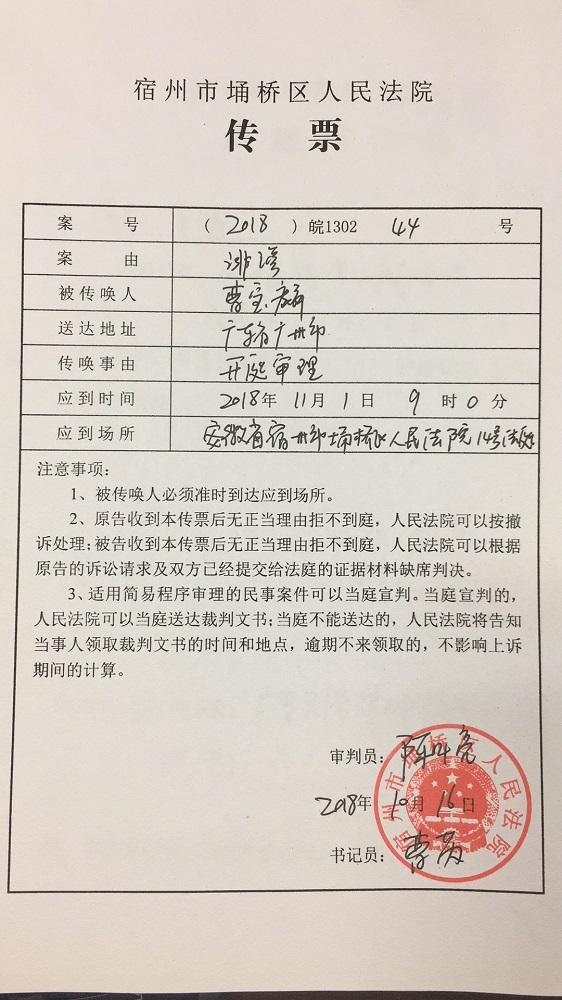 宿州市埇桥区人民法院
传 票
案 号 （ 2018 ）皖1302 44 号
案 由 诽谤
被传唤人 曹宝麟
送达地址 广东省广州市
传唤事由 开庭审理
应到时间 2018年 11月 1日 9时0分
应到场所 安徽省宿州市埇桥区人民法院14号法庭
注意事项：
1、被传唤人必须准时到达应到场所。
2、原告收到本传票后无正当理由拒不到庭，人民法院可以按撤
诉处理；被告收到本传票后无正当理由拒不到庭，人民法院可以根据
原告的诉讼请求及双方已经提交给法庭的证据材料缺席判决。
3、适用简易程序审理的民事案件可以当庭宣判。当庭宣判的，
人民法院可以当庭送达裁判文书；当庭不能送达的，人民法院将告知
当事人领取裁判文书的时间和地点，逾期不来领取的，不影响上诉
期间的计算。
审判员：
2018年 10月 16日
书记员：曹
宿州市埇桥区人民法院